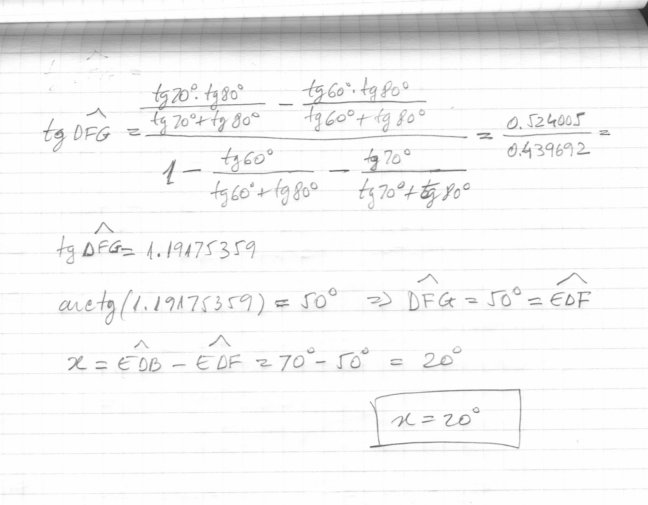 tg DFG = (tg70°·tg80°/(tg70°+tg80°) − tg60°·tg80°/(tg60°+tg80°)) / (1 − tg60°/(tg60°+tg80°) − tg70°/(tg70°+tg80°)) = 0.524005/0.439692 =
tg DFG = 1.19175359
arctg(1.19175359) = 50° ⇒ DFG = 50° = EDF
x = EDB − EDF = 70° − 50° = 20°
x = 20°